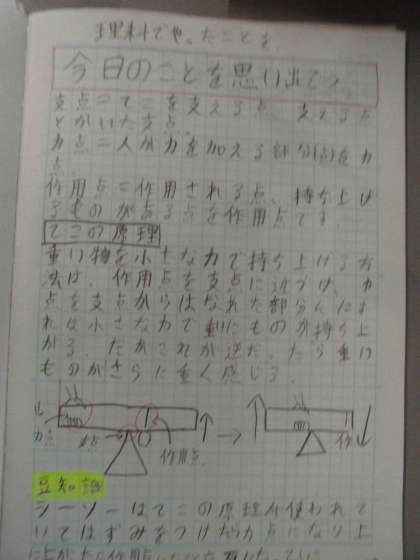 理科でやったことを
今日のことを思い出て
支点=てこを支える点、支える点
とかいた支点。
力点=人が力を加える部分(点)を力
点
作用点=作用される点、持ち上げ
るものがある点を作用点です。
てこの原理
重い物を小さな力で持ち上げる方
法は、作用点を支点に近づけ、力
点を支点からはなれた部分んにす
れば小さな力で重にものが持ち上
がる。だがこれが逆だったら重い
ものがさらに重く感じる。
力点 支点 作用点
豆知識
シーソーはてこの原理が使われて
いてはずみをつけたら力点になり上